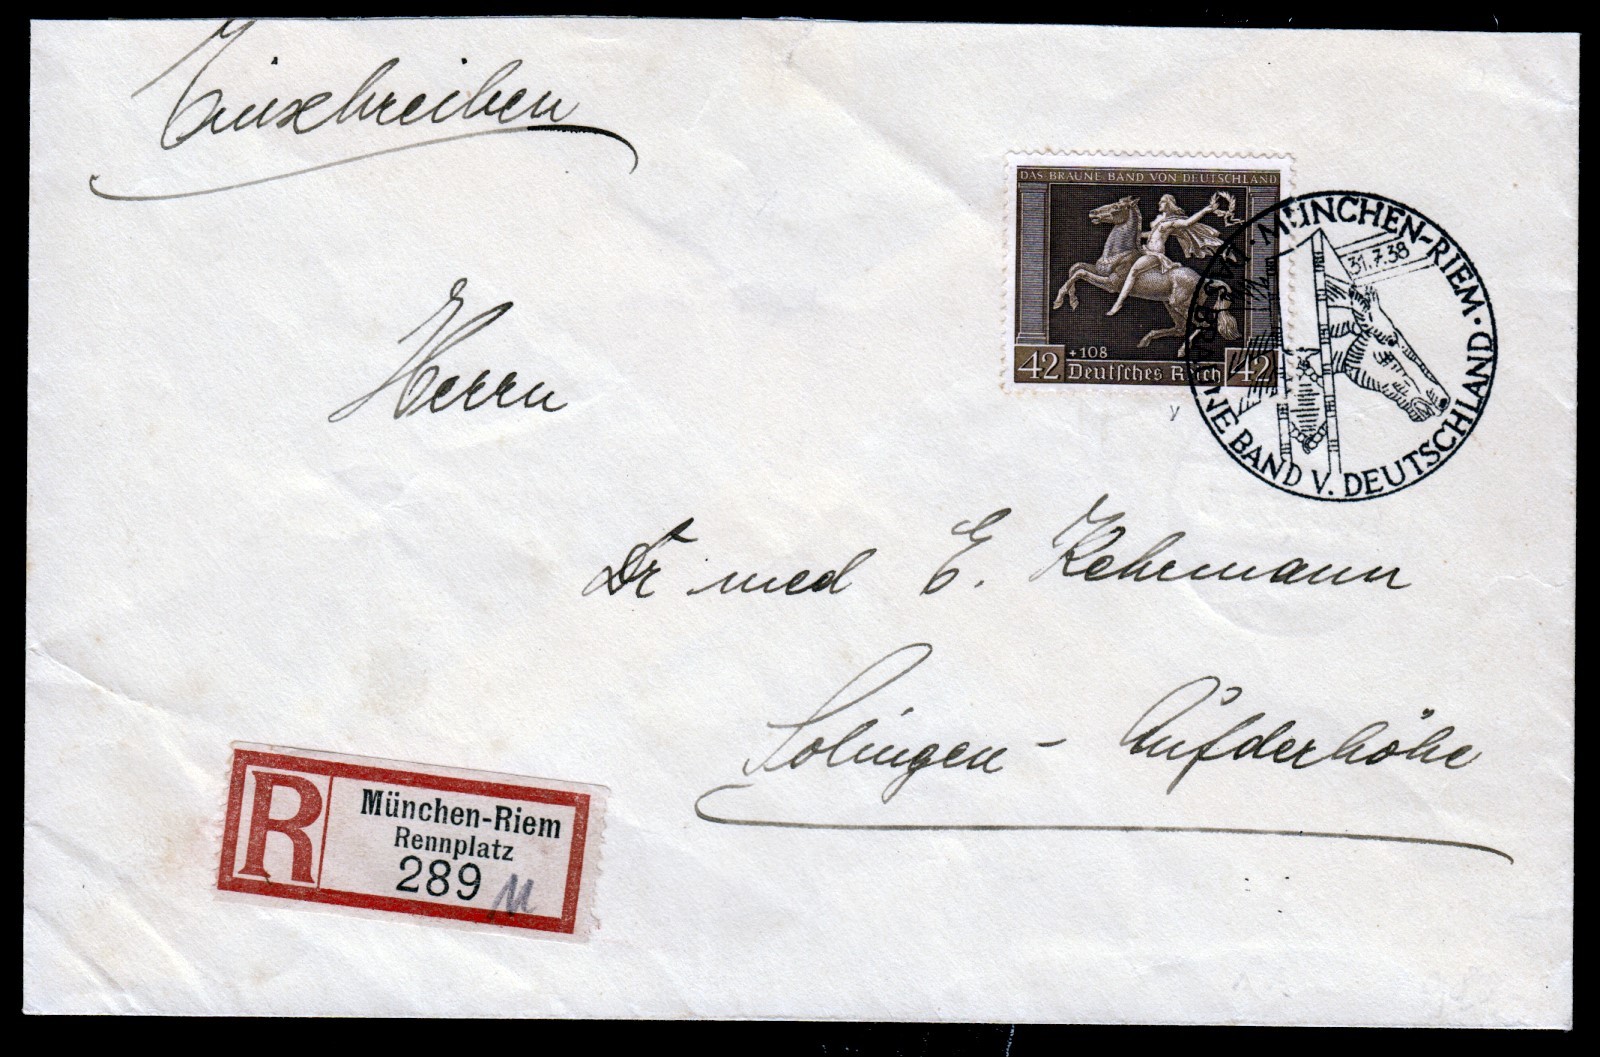 Einschreiben
DAS BRAUNE BAND VON DEUTSCHLAND
42 +108 Deutsches Reich 42
· MÜNCHEN-RIEM · DAS BRAUNE BAND V. DEUTSCHLAND
31.7.38
Herrn
Dr med E. Kehrmann
Solingen - Aufderhöhe
R
München-Riem
Rennplatz
289